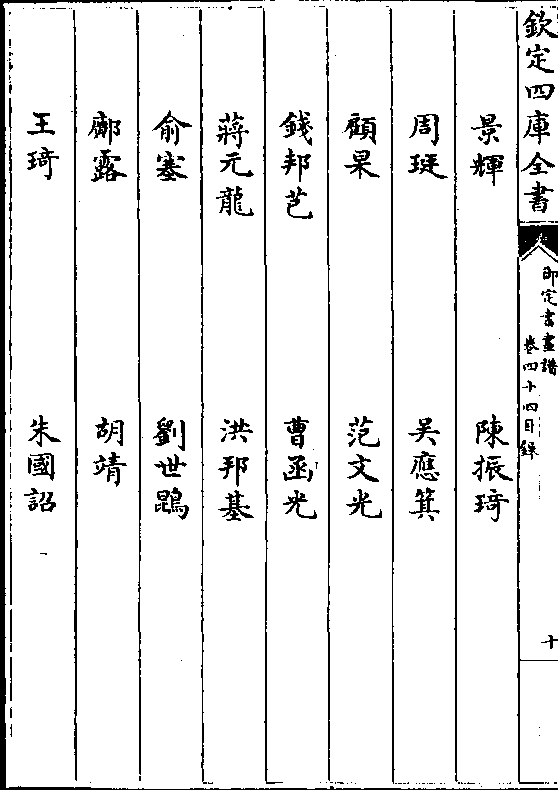 欽定四庫全書
御定書畫譜
卷四十四目錄
十
景輝 陳振琦
周珽 吳應箕
顧杲 范文光
錢邦芑 曹函光
蔣元龍 洪邦基
俞塞 劉世鵾
鄺露 胡靖
王琦 朱國詔